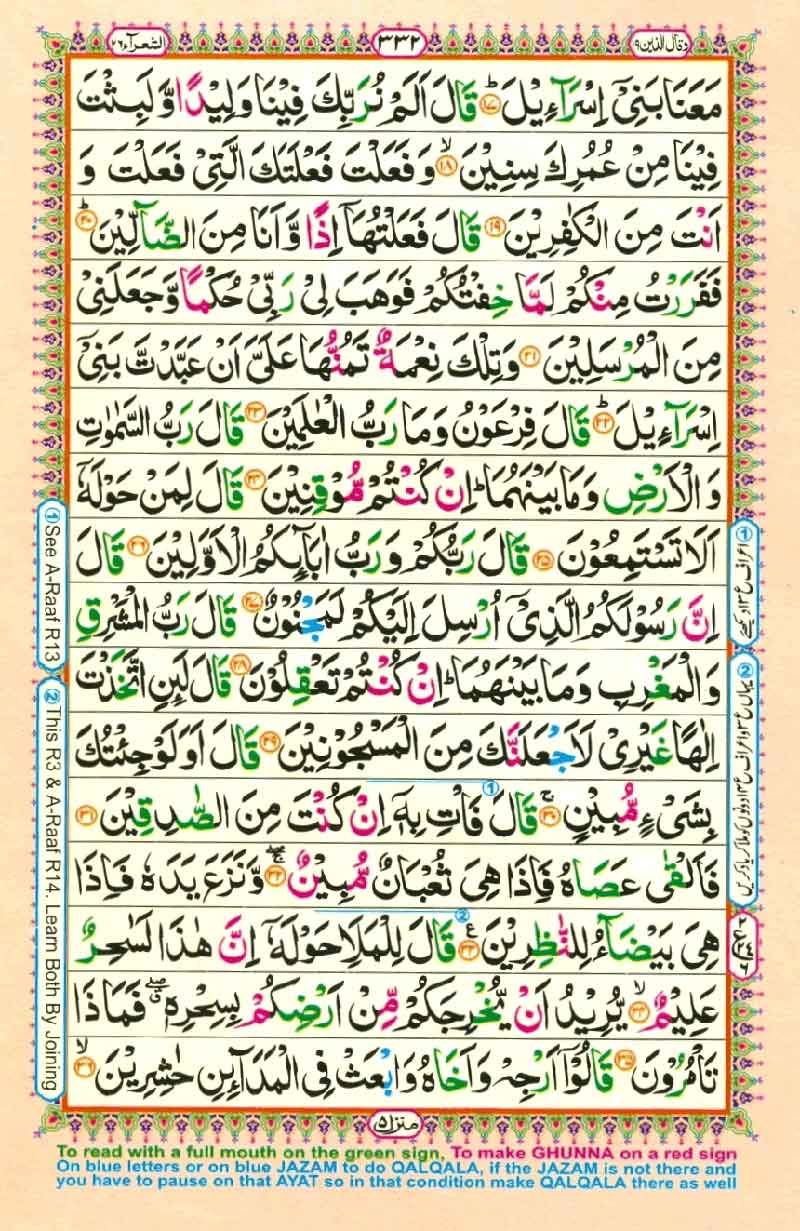 الشعرآء ٢٦
٣٣٢
وقال الذین ١٩
مَعَنَا بَنِیْۤ اِسْرَآءِیْلَ ؕ ﴿١٧﴾ قَالَ اَلَمْ نُرَبِّكَ فِیْنَا وَلِیْدًا وَّ لَبِثْتَ
فِیْنَا مِنْ عُمُرِكَ سِنِیْنَ ۙ ﴿١٨﴾ وَ فَعَلْتَ فَعْلَتَكَ الَّتِیْ فَعَلْتَ وَ
اَنْتَ مِنَ الْكٰفِرِیْنَ ﴿١٩﴾ قَالَ فَعَلْتُهَاۤ اِذًا وَّ اَنَا مِنَ الضَّآلِّیْنَ ؕ ﴿٢٠﴾
فَفَرَرْتُ مِنْكُمْ لَمَّا خِفْتُكُمْ فَوَهَبَ لِیْ رَبِّیْ حُكْمًا وَّ جَعَلَنِیْ
مِنَ الْمُرْسَلِیْنَ ﴿٢١﴾ وَ تِلْكَ نِعْمَةٌ تَمُنُّهَا عَلَیَّ اَنْ عَبَّدْتَّ بَنِیْۤ
اِسْرَآءِیْلَ ؕ ﴿٢٢﴾ قَالَ فِرْعَوْنُ وَ مَا رَبُّ الْعٰلَمِیْنَ ﴿٢٣﴾ قَالَ رَبُّ السَّمٰوٰتِ
وَ الْاَرْضِ وَ مَا بَیْنَهُمَا ؕ اِنْ كُنْتُمْ مُّوْقِنِیْنَ ﴿٢٤﴾ قَالَ لِمَنْ حَوْلَهٗۤ
اَلَا تَسْتَمِعُوْنَ ﴿٢٥﴾ قَالَ رَبُّكُمْ وَ رَبُّ اٰبَآىِٕكُمُ الْاَوَّلِیْنَ ﴿٢٦﴾ قَالَ
اِنَّ رَسُوْلَكُمُ الَّذِیْۤ اُرْسِلَ اِلَیْكُمْ لَمَجْنُوْنٌ ﴿٢٧﴾ قَالَ رَبُّ الْمَشْرِقِ
وَ الْمَغْرِبِ وَ مَا بَیْنَهُمَا ؕ اِنْ كُنْتُمْ تَعْقِلُوْنَ ﴿٢٨﴾ قَالَ لَىِٕنِ اتَّخَذْتَ
اِلٰهًا غَیْرِیْ لَاَجْعَلَنَّكَ مِنَ الْمَسْجُوْنِیْنَ ﴿٢٩﴾ قَالَ اَوَ لَوْ جِئْتُكَ
بِشَیْءٍ مُّبِیْنٍ ۚ ﴿٣٠﴾ قَالَ فَاْتِ بِهٖۤ اِنْ كُنْتَ مِنَ الصّٰدِقِیْنَ ﴿٣١﴾
فَاَلْقٰی عَصَاهُ فَاِذَا هِیَ ثُعْبَانٌ مُّبِیْنٌ ﴿٣٢﴾ وَّ نَزَعَ یَدَهٗ فَاِذَا
هِیَ بَیْضَآءُ لِلنّٰظِرِیْنَ ﴿٣٣﴾ قَالَ لِلْمَلَاِ حَوْلَهٗۤ اِنَّ هٰذَا لَسٰحِرٌ
عَلِیْمٌ ۙ ﴿٣٤﴾ یُّرِیْدُ اَنْ یُّخْرِجَكُمْ مِّنْ اَرْضِكُمْ بِسِحْرِهٖ فَمَا ذَا
تَاْمُرُوْنَ ﴿٣٥﴾ قَالُوْۤا اَرْجِهْ وَ اَخَاهُ وَ ابْعَثْ فِی الْمَدَآىِٕنِ حٰشِرِیْنَ ۙ ﴿٣٦﴾
منزل ۵
① See A-Raaf R13
② This R3 & A-Raaf R14. Learn Both By Joining
To read with a full mouth on the green sign, To make GHUNNA on a red sign
On blue letters or on blue JAZAM to do QALQALA, if the JAZAM is not there and
you have to pause on that AYAT so in that condition make QALQALA there as well